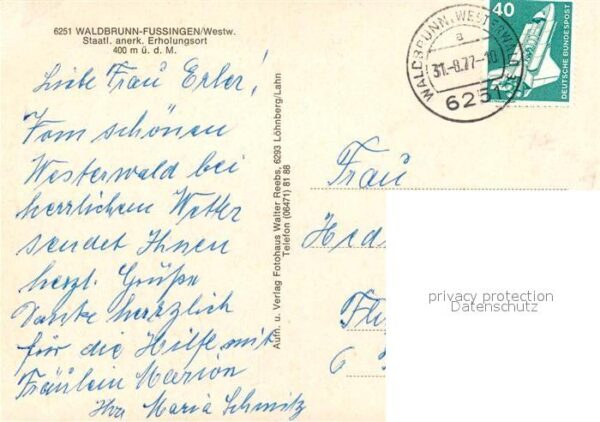 6251 WALDBRUNN-FUSSINGEN/Westw.
Staatl. anerk. Erholungsort
400 m ü. d. M.
Liebe Frau Erler!
Vom schönen
Westerwald bei
herrlichem Wetter
sendet Ihnen
herzl. Grüße
Danke herzlich
für die Hilfe mit
Fräulein Marion
Ihre Maria Schmitz
Aufn. u. Verlag Fotohaus Walter Reebs, 6293 Löhnberg/Lahn
Telefon (06471) 81 88
WALDBRUNN, WESTERWALD
a
31.-8.77-10
6251
40
DEUTSCHE BUNDESPOST
Frau
Hed
privacy protection
Datenschutz
6